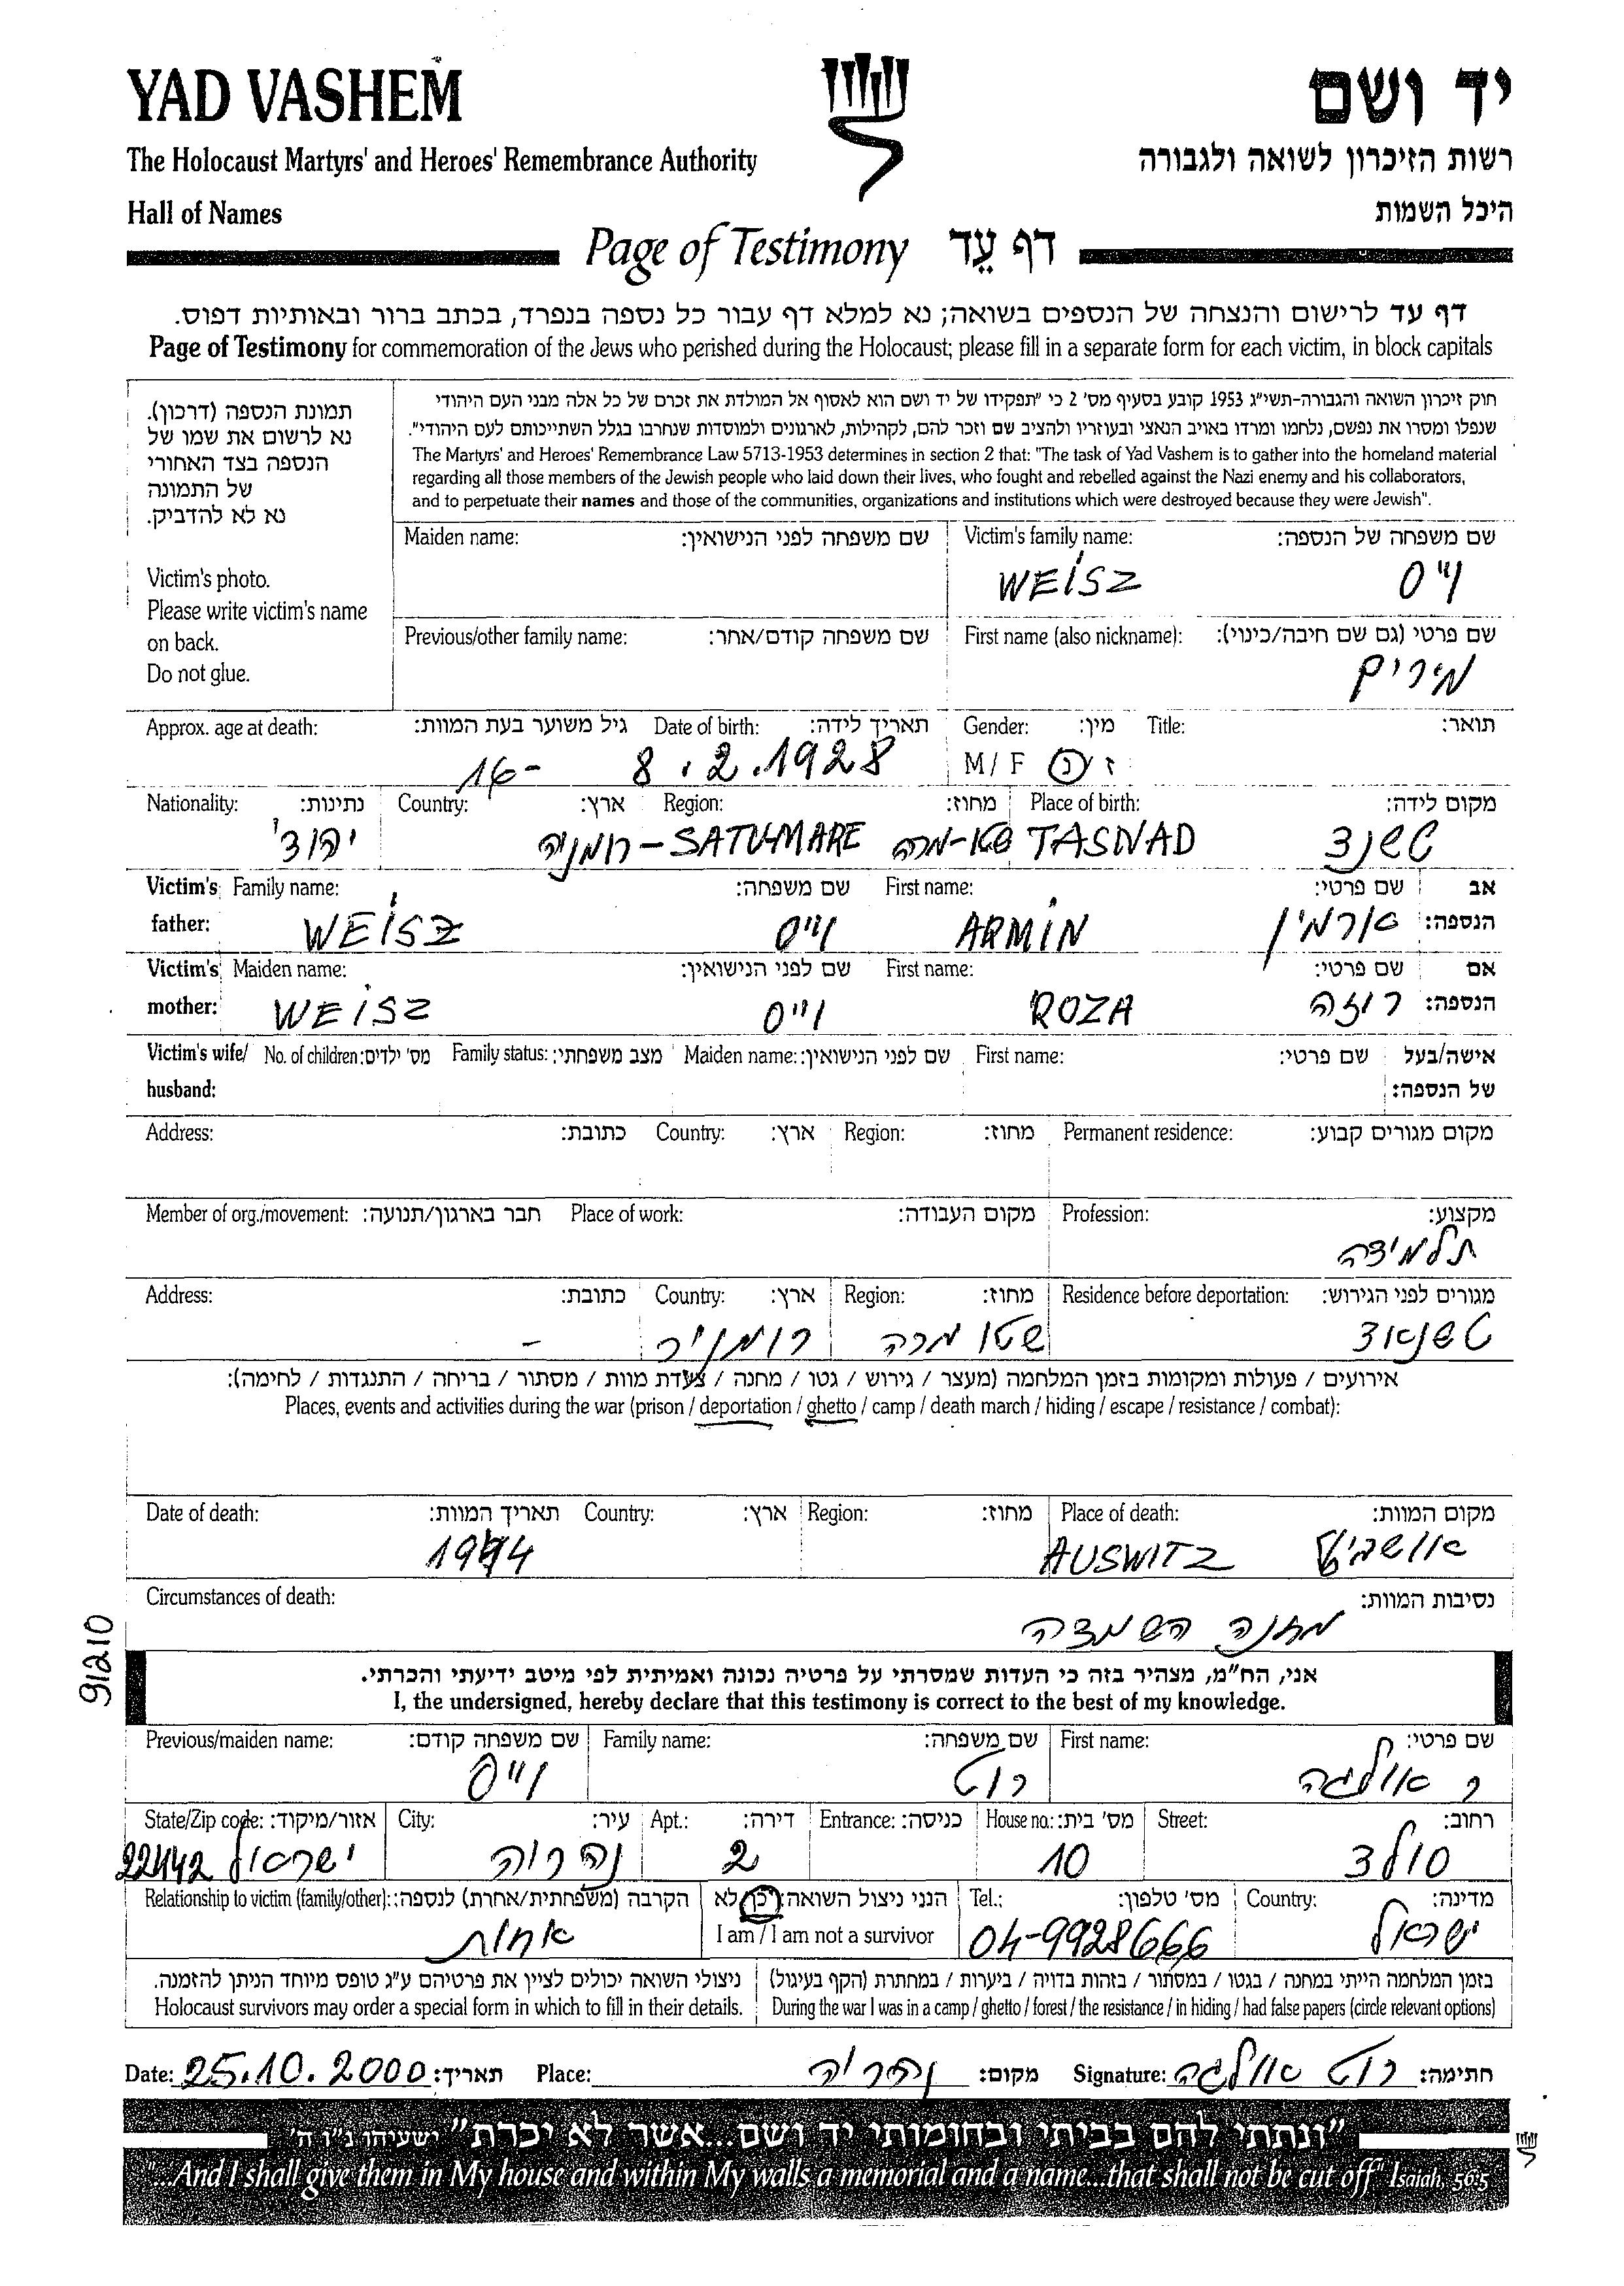 YAD VASHEM
יד ושם
The Holocaust Martyrs' and Heroes' Remembrance Authority
רשות הזיכרון לשואה ולגבורה
Hall of Names
היכל השמות
Page of Testimony דף עֵד
דף עד לרישום והנצחה של הנספים בשואה; נא למלא דף עבור כל נספה בנפרד, בכתב ברור ובאותיות דפוס.
Page of Testimony for commemoration of the Jews who perished during the Holocaust; please fill in a separate form for each victim, in block capitals
תמונת הנספה (דרכון).
נא לרשום את שמו של
הנספה בצד האחורי
של התמונה
נא לא להדביק.
Victim's photo.
Please write victim's name
on back.
Do not glue.
חוק זיכרון השואה והגבורה-תשי"ג 1953 קובע בסעיף מס' 2 כי "תפקידו של יד ושם הוא לאסוף אל המולדת את זכרם של כל אלה מבני העם היהודי
שנפלו ומסרו את נפשם, נלחמו ומרדו באויב הנאצי ובעוזריו ולהציב שם וזכר להם, לקהילות, לארגונים ולמוסדות שנחרבו בגלל השתייכותם לעם היהודי".
The Martyrs' and Heroes' Remembrance Law 5713-1953 determines in section 2 that: "The task of Yad Vashem is to gather into the homeland material
regarding all those members of the Jewish people who laid down their lives, who fought and rebelled against the Nazi enemy and his collaborators,
and to perpetuate their names and those of the communities, organizations and institutions which were destroyed because they were Jewish".
Maiden name: שם משפחה לפני הנישואין: Victim's family name: שם משפחה של הנספה:
WEISZ וייס
Previous/other family name: שם משפחה קודם/אחר: First name (also nickname): שם פרטי (גם שם חיבה/כינוי):
מירים
Approx. age at death: גיל משוער בעת המוות: Date of birth: תאריך לידה: Gender: מין: Title: תואר:
16- 8.2.1928 M / F ז / נ
Nationality: נתינות: Country: ארץ: Region: מחוז: Place of birth: מקום לידה:
יהודי רומניה - SATU-MARE סטו-מרה TASNAD טשנד
Victim's father: Family name: שם משפחה: First name: שם פרטי: אב הנספה:
WEISZ וייס ARMIN ארמין
Victim's mother: Maiden name: שם לפני הנישואין: First name: שם פרטי: אם הנספה:
WEISZ וייס ROZA רוזה
Victim's wife/ husband: No. of children: מס' ילדים: Family status: מצב משפחתי: Maiden name: שם לפני הנישואין: First name: שם פרטי: אישה/בעל של הנספה:
Address: כתובת: Country: ארץ: Region: מחוז: Permanent residence: מקום מגורים קבוע:
Member of org./movement: חבר בארגון/תנועה: Place of work: מקום העבודה: Profession: מקצוע:
תלמידה
Address: כתובת: Country: ארץ: Region: מחוז: Residence before deportation: מגורים לפני הגירוש:
- רומניה שטו מרה טשנאד
אירועים / פעולות ומקומות בזמן המלחמה (מעצר / גירוש / גטו / מחנה / צעדת מוות / מסתור / בריחה / התנגדות / לחימה):
Places, events and activities during the war (prison / deportation / ghetto / camp / death march / hiding / escape / resistance / combat):
Date of death: תאריך המוות: Country: ארץ: Region: מחוז: Place of death: מקום המוות:
1944 AUSWITZ אושביץ
Circumstances of death: נסיבות המוות:
מחנה השמדה
91210
אני, הח"מ, מצהיר בזה כי העדות שמסרתי על פרטיה נכונה ואמיתית לפי מיטב ידיעתי והכרתי.
I, the undersigned, hereby declare that this testimony is correct to the best of my knowledge.
Previous/maiden name: שם משפחה קודם: Family name: שם משפחה: First name: שם פרטי:
וייס רוט אולגה
State/Zip code: אזור/מיקוד: City: עיר: Apt.: דירה: Entrance: כניסה: House no.: מס' בית: Street: רחוב:
22442 ישראל נהריה 2 10 סולד
Relationship to victim (family/other): הקרבה (משפחתית/אחרת) לנספה: הנני ניצול השואה: כן / לא Tel.: מס' טלפון: Country: מדינה:
אחות I am / I am not a survivor 04-9928666 ישראל
ניצולי השואה יכולים לציין את פרטיהם ע"ג טופס מיוחד הניתן להזמנה. בזמן המלחמה הייתי במחנה / בגטו / במסתור / בזהות בדויה / ביערות / במחתרת (הקף בעיגול)
Holocaust survivors may order a special form in which to fill in their details. During the war I was in a camp / ghetto / forest / the resistance / in hiding / had false papers (circle relevant options)
Date: 25.10.2000 תאריך: Place: נהריה מקום: Signature: רוט אולגה חתימה:
"ונתתי להם בביתי ובחומותי יד ושם...אשר לא יכרת" ישעיהו נ"ו ה'
"...And I shall give them in My house and within My walls a memorial and a name...that shall not be cut off" Isaiah 56:5